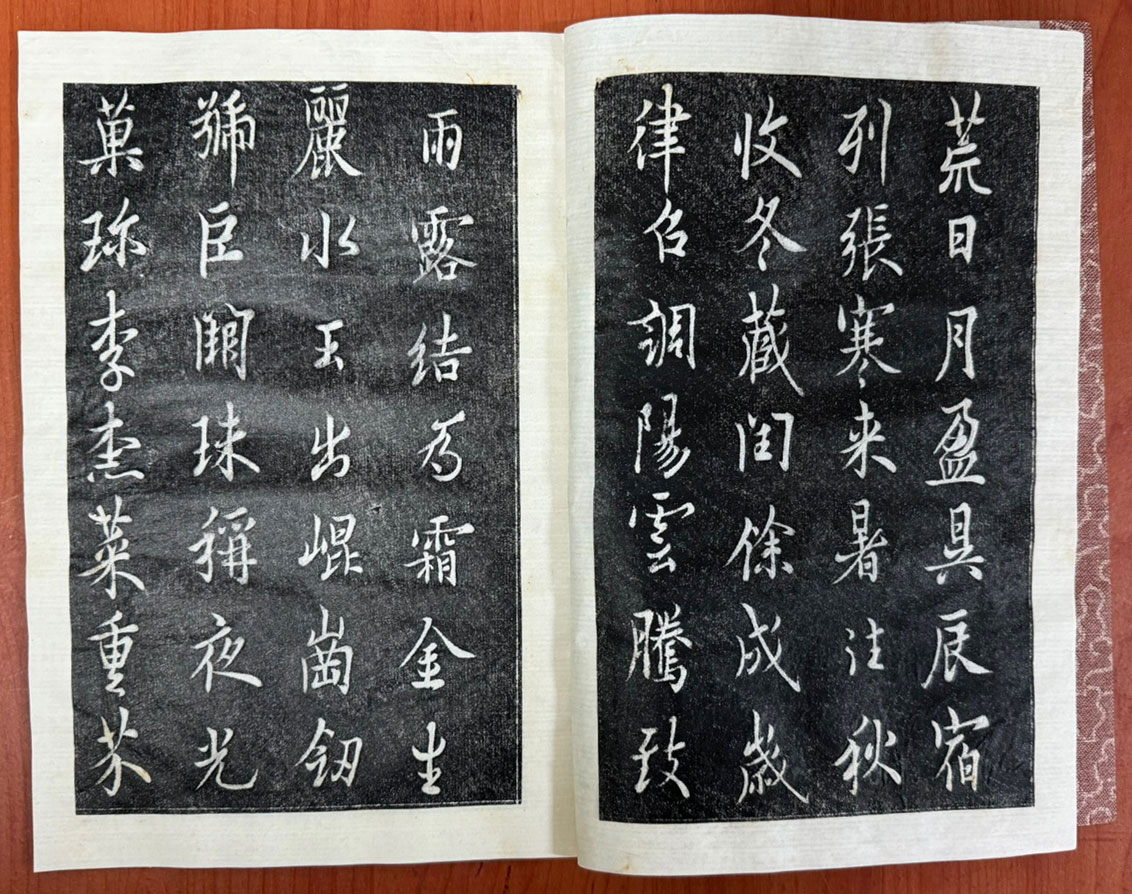 荒日月盈具辰宿
列張寒来暑往秋
收冬藏閏餘成歲
律召調陽雲騰致
雨露結為霜金生
麗水玉出崐崗釰
號巨闕珠稱夜光
菓珎李柰菜重芥